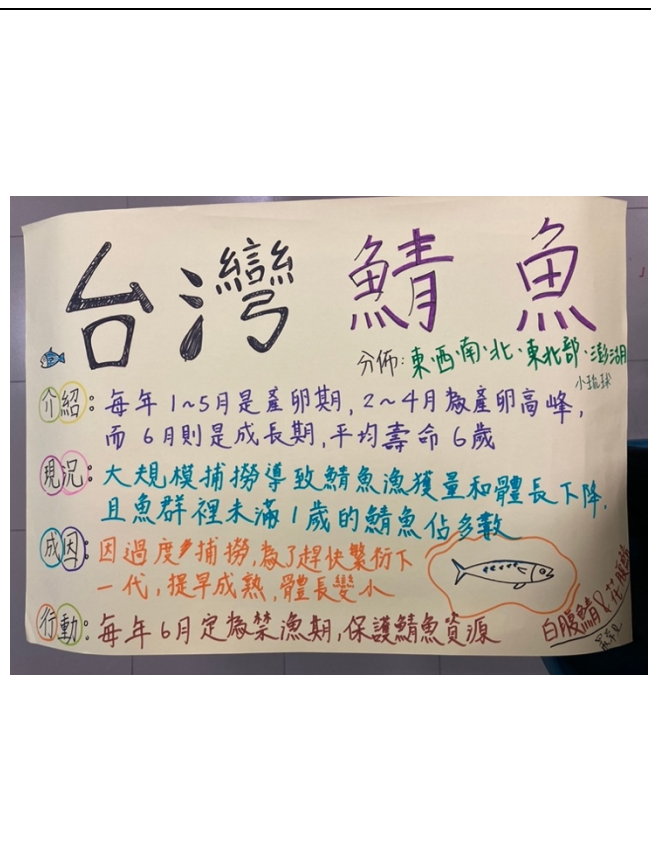 台灣 鯖魚
分佈:東・西・南・北・東北部・澎湖
小琉球
介紹:每年1~5月是產卵期,2~4月為產卵高峰,
而6月則是成長期,平均壽命6歲
現況:大規模捕撈導致鯖魚漁獲量和體長下降,
且魚群裡未滿1歲的鯖魚佔多數
成因:因過度捕撈,為了趕快繁衍下
一代,提早成熟,體長變小
行動:每年6月定為禁漁期,保護鯖魚資源
白腹鯖&花腹鯖